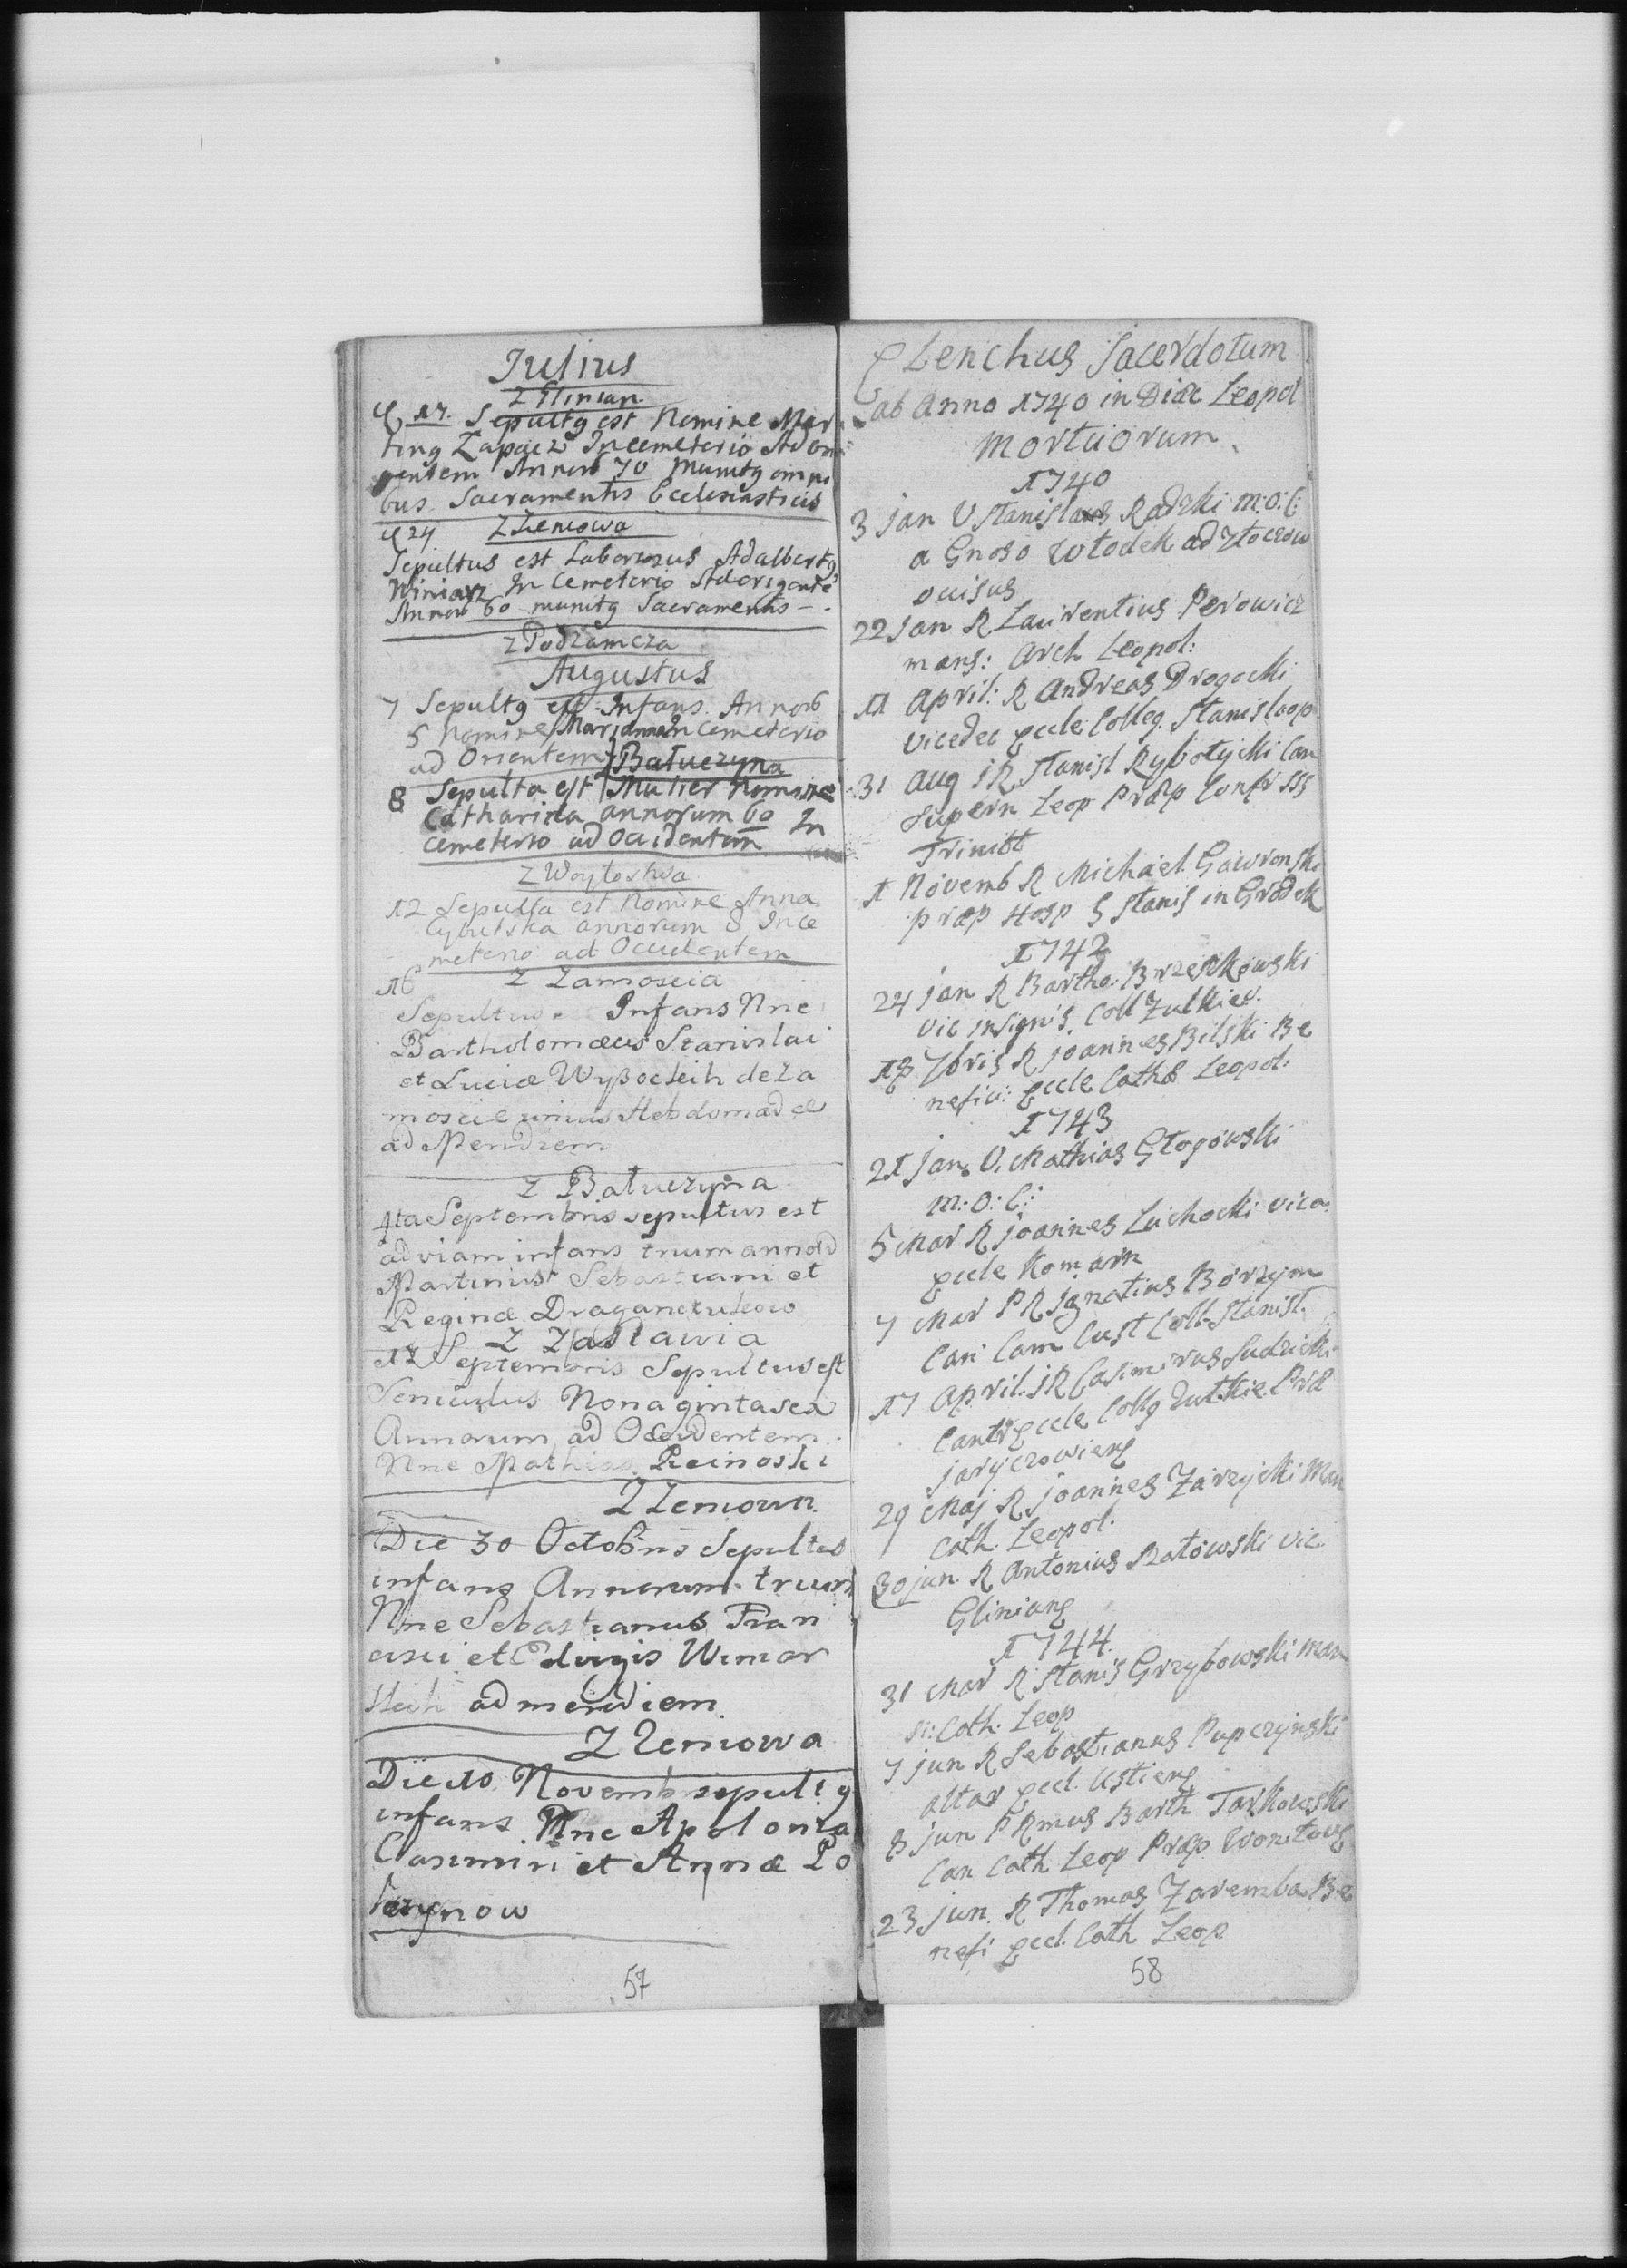 Julius
Z Glinian
17. Sepultg est Nomine Mar
ting Zapacz In cemeterio Ad Ori
gentem Annor 70 Munitg omni
bus Sacramentis Ecclesiasticis
24 Z Zeniowa
Sepultus est Laboriosus Adalbertg
Winiarz In Cemeterio Ad origentē
Annor 60 munitg Sacramentis - .
Z Podzamcza
Augustus
7 Sepultg est Infans Annorb
5 Nomine Marianna In Cemeterio
ad Orientem Z Batuczyna
8 Sepulta est Mulier Nomine
Catharina annorum 60 In
Cemeterio ad Occidentem
Z Woytostwa
12 Sepulta est Nomine Anna
Cybulska annorum 8 In Ce
meterio ad Occidentem
16 Z Zamoscia
Sepultus e Infans Nne
Bartholomæus Stanislai
et Luciæ Wyßockich de Za
moscie unius Hebdomadæ
ad Meridiem
Z Batuczyna
4ta Septembris sepultus est
ad viam infans trium annor
Martinus Sebastiani et
Reginæ
Z Zastawia
12 Septembris Sepultus est
Seniculus Nonagintasex
Annorum ad Occidentem
Nne Mathias
Z Zeniowa
Die 30 Octobris Sepultus
infans Annorum trium
Nne Sebastianus Fran
cisci et Edvigis Winiar
skich ad meridiem
Z Zeniowa
Die 10 Novemb sepultg
infans Nne Apolonia
Casimiri et Annæ Lo
57
Elenchus Sacerdotum
ab Anno 1740 in Diæc Leopol
Mortuorum
1740
3 Jan V Stanislaus Radzki m: o: C:
a Gnoso Włodek ad Złoczow
occisus
22 Jan R Laurentius Perowicz
mans: Arch Leopol:
11 April: R Andreas Drogocki
Vicedec Eccle Colleg. Stanislaop
31 Aug JR Stanisl Rybotycki Can
Supern Leop Præp Confr SSS
Trinitt
1 Novemb R Michael Gawronski
præp Hosp S Stanis in Grodek
1742
24 Jan R Bartho: Brzeskowski
Vic Insignis Coll Zulkiev.
18 7bris R Joannes Bilski Be
nefic: Eccle Cath Leopol:
1743
21 Jan V. Mathias Głogowski
m: o: C:
5 Mar R Joannes Luchocki vica
Eccle Komarn
7 Mar PR Ignatius Borzym
Can Cam Cust Coll Stanisl.
17 April: JR Casimirus Sudzicki
Cantr Eccle Collg Zulkie Præ
29 Maj R Joannes Zarzycki Man
Cath Leopol.
30 Jun R Antonius Ratowski Vic
Gliniang
1744.
31 Mar R Stanis Grzybowski Man
si: Cath: Leop
7 Jun R Sebastianus Pupczynski
altar Eccl. Ustieng
8 Jun PRmus Barth Tarkowski
Can Cath Leop Præp
23 Jun. R Thomas Zaremba Be
nefi Eccl. Cath Leop
58